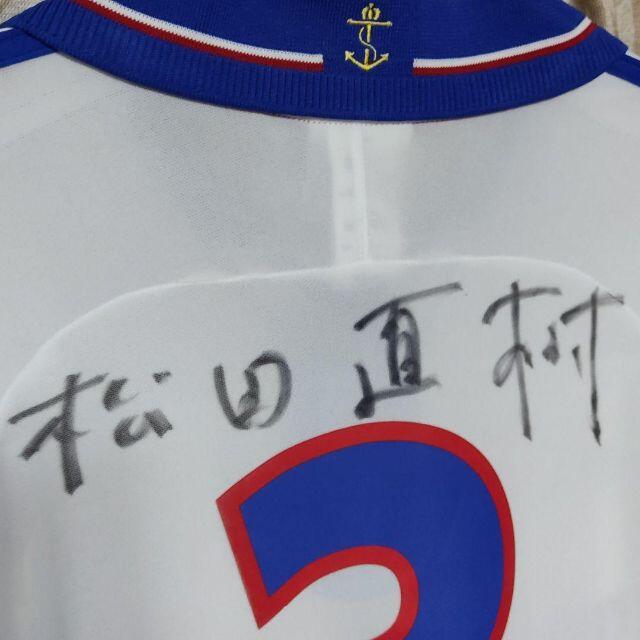 松田直樹